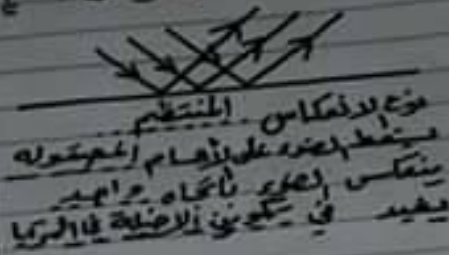 نوع الانعكاس المنتظم
يسقط الضوء على الأجسام المصقوله
ينعكس الضوء باتجاه واحد
يفيد في تكوين الاخيلة في المرايا